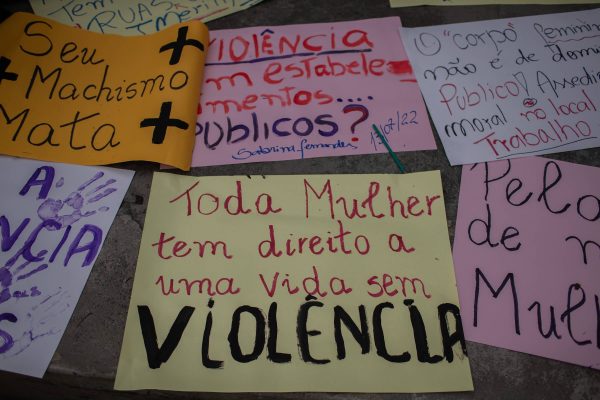 RUAS
Tem
Seu
+ Machismo
Mata
VIOLÊNCIA
em estabele
cimentos....
PÚBLICOS?
Sabrina Fernandes
O "corpo" feminino
não é de domí
Público! Assédio
moral no local
Trabalho
A
VIOLÊNCIA
Toda Mulher
tem direito a
uma vida sem
VIOLÊNCIA
Pelo
de
Mulh